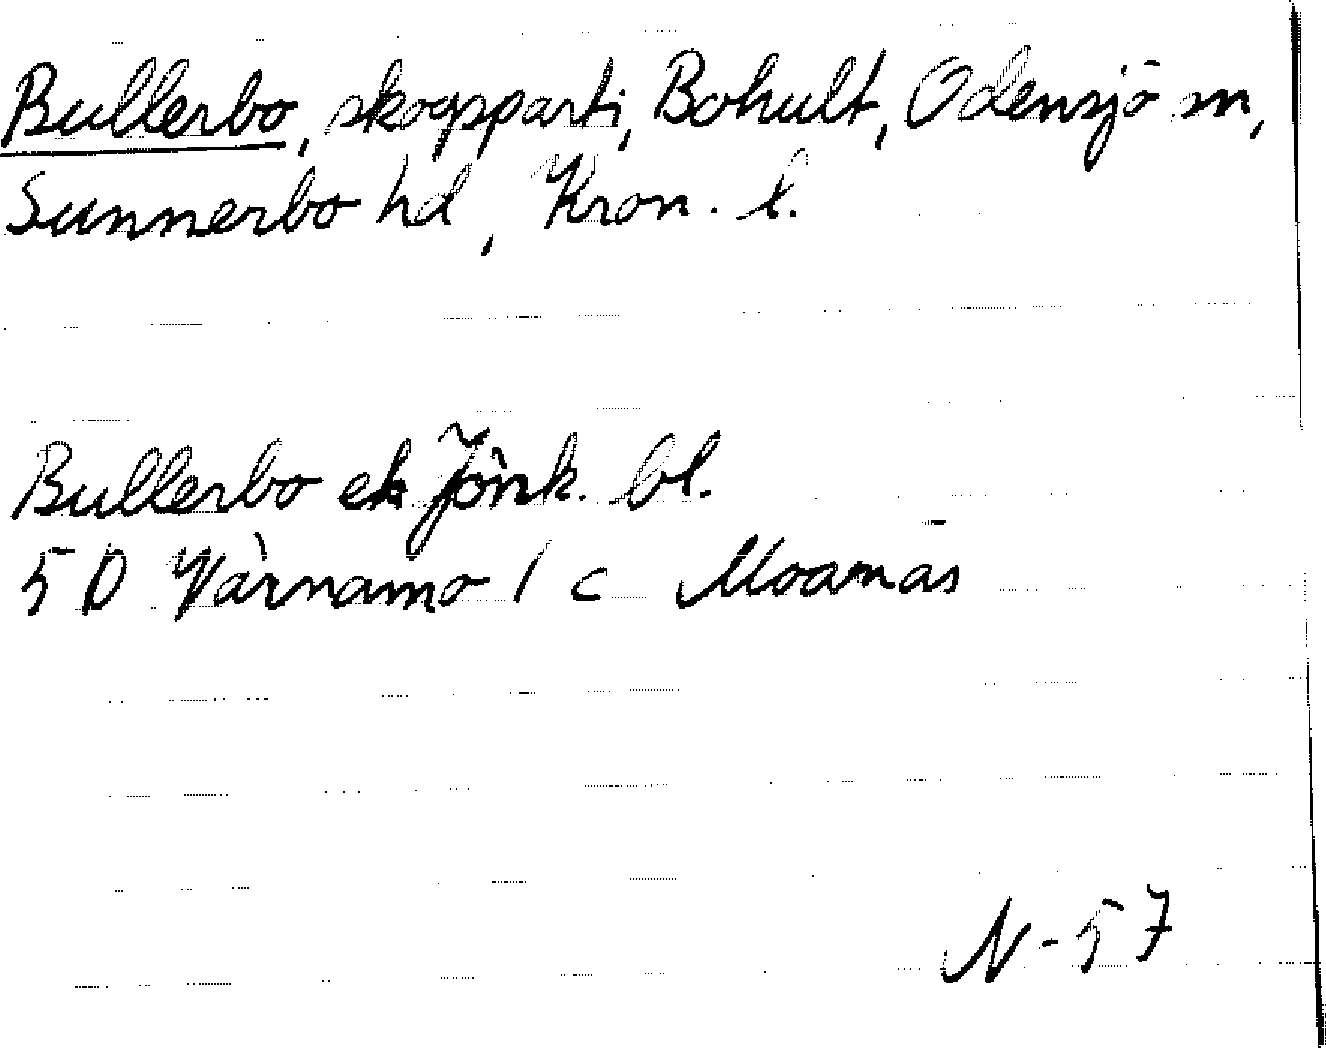 Bullerbo, skogsparti, Bohult, Odensjö sn,
Sunnerbo hd, Kron. l.
Bullerbo ek Jönk. bl.
5 D Värnamo 1 c Moanäs
N-57